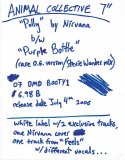 ANIMAL COLLECTIVE 7"
"Polly" by Nirvana
b/w
"Purple Bottle"
(rare O.G. version/Stevie Wonder mix)
07 DMD BOOTY1
$6.98 B
release date July 4th 2006
white label w/2 exclusive tracks
one Nirvana cover
one track from "Feels"
w/different vocals...